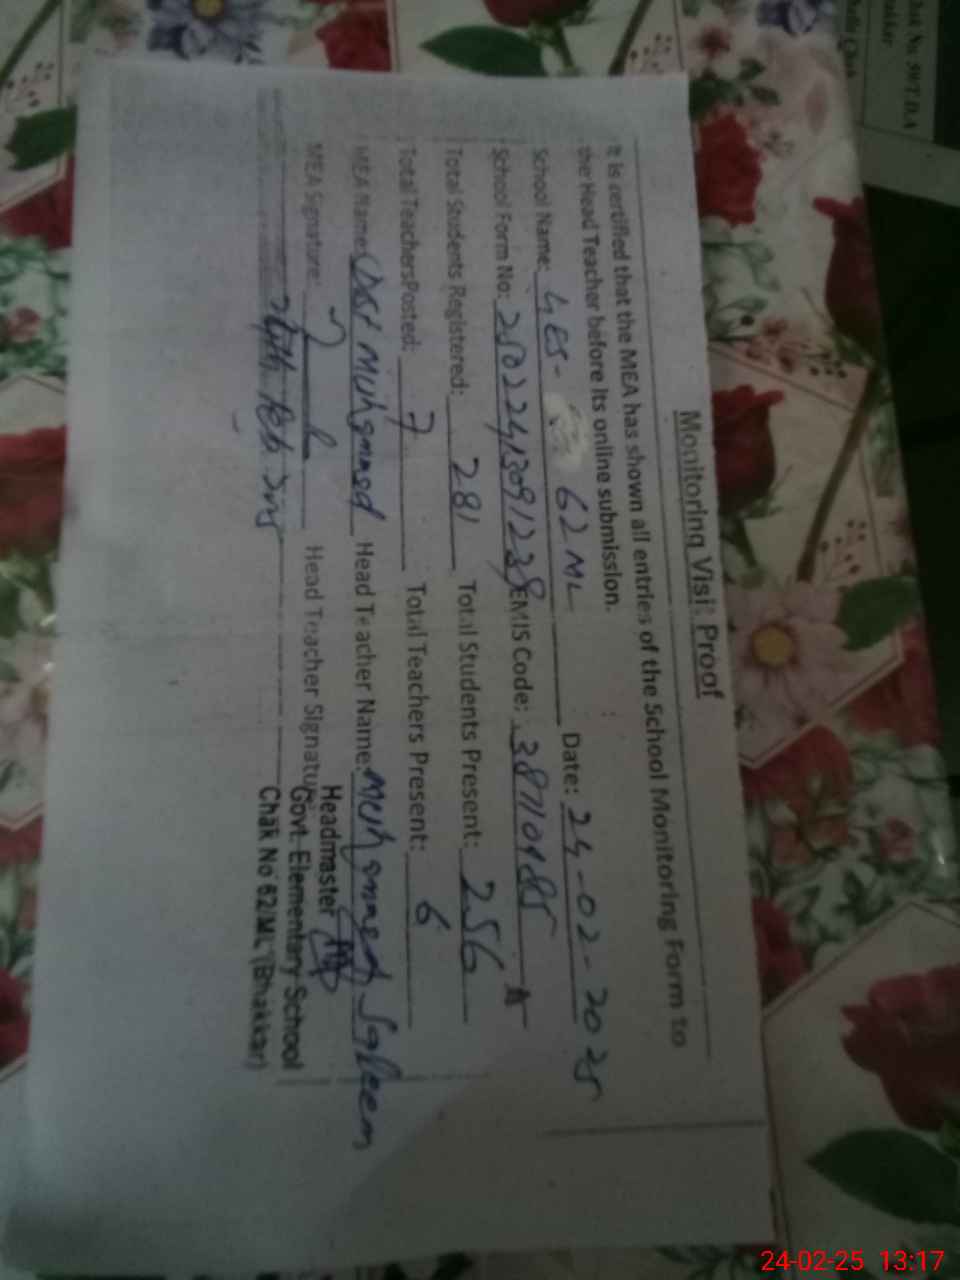 Monitoring Visit Proof
It is certified that the MEA has shown all entries of the School Monitoring Form to
the Head Teacher before its online submission.
School Name: GES- 62 ML Date: 24-02-2025
School Form No: EMIS Code:
Total Students Registered: 281 Total Students Present: 256
Total TeachersPosted: 7 Total Teachers Present: 6
MEA Name: Muhammad Head Teacher Name: Muhammad Saleem
MEA Signature: Head Teacher Signature:
Headmaster
Govt. Elementary School
Chak No 62/ML (Bhakkar)
24-02-25 13:17